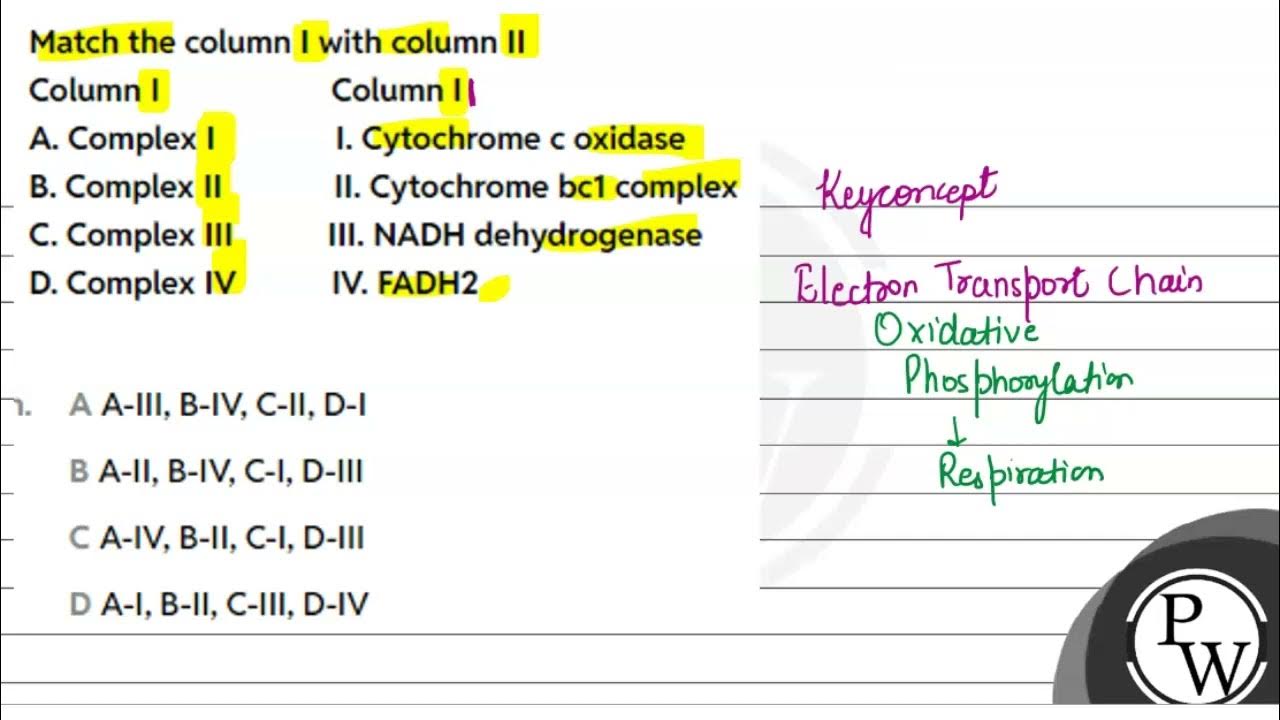 Match the column I with column II
Column I Column II
A. Complex I I. Cytochrome c oxidase
B. Complex II II. Cytochrome bc1 complex
C. Complex III III. NADH dehydrogenase
D. Complex IV IV. FADH2
A A-III, B-IV, C-II, D-I
B A-II, B-IV, C-I, D-III
C A-IV, B-II, C-I, D-III
D A-I, B-II, C-III, D-IV
Keyconcept
Electron Transport Chain
Oxidative
Phosphorylation
↓
Respiration
PW